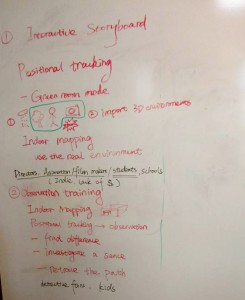 ① Interactive Storyboard
Positional tracking
- Green room mode
① ② Import 3D environments
Indoor mapping
use the real environment
Directors, Animation/film makers/students, schools
(Indie, lack of $)
② Observation training
Indoor Mapping
Positional tracking → observation
- find difference
- Investigate a scene
- retrace the path
detective fans, kids